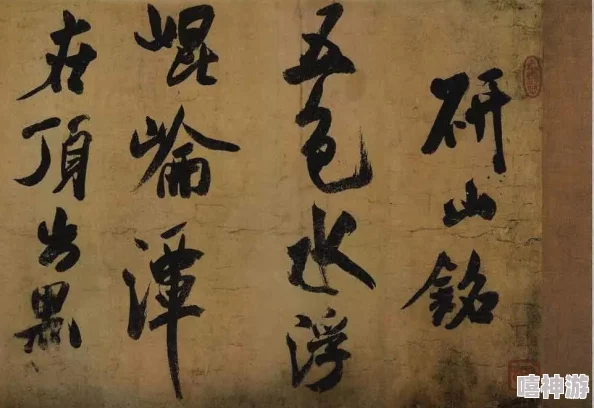 研山銘
五色水浮
崐崘潭
在頂出黑
嘻神游